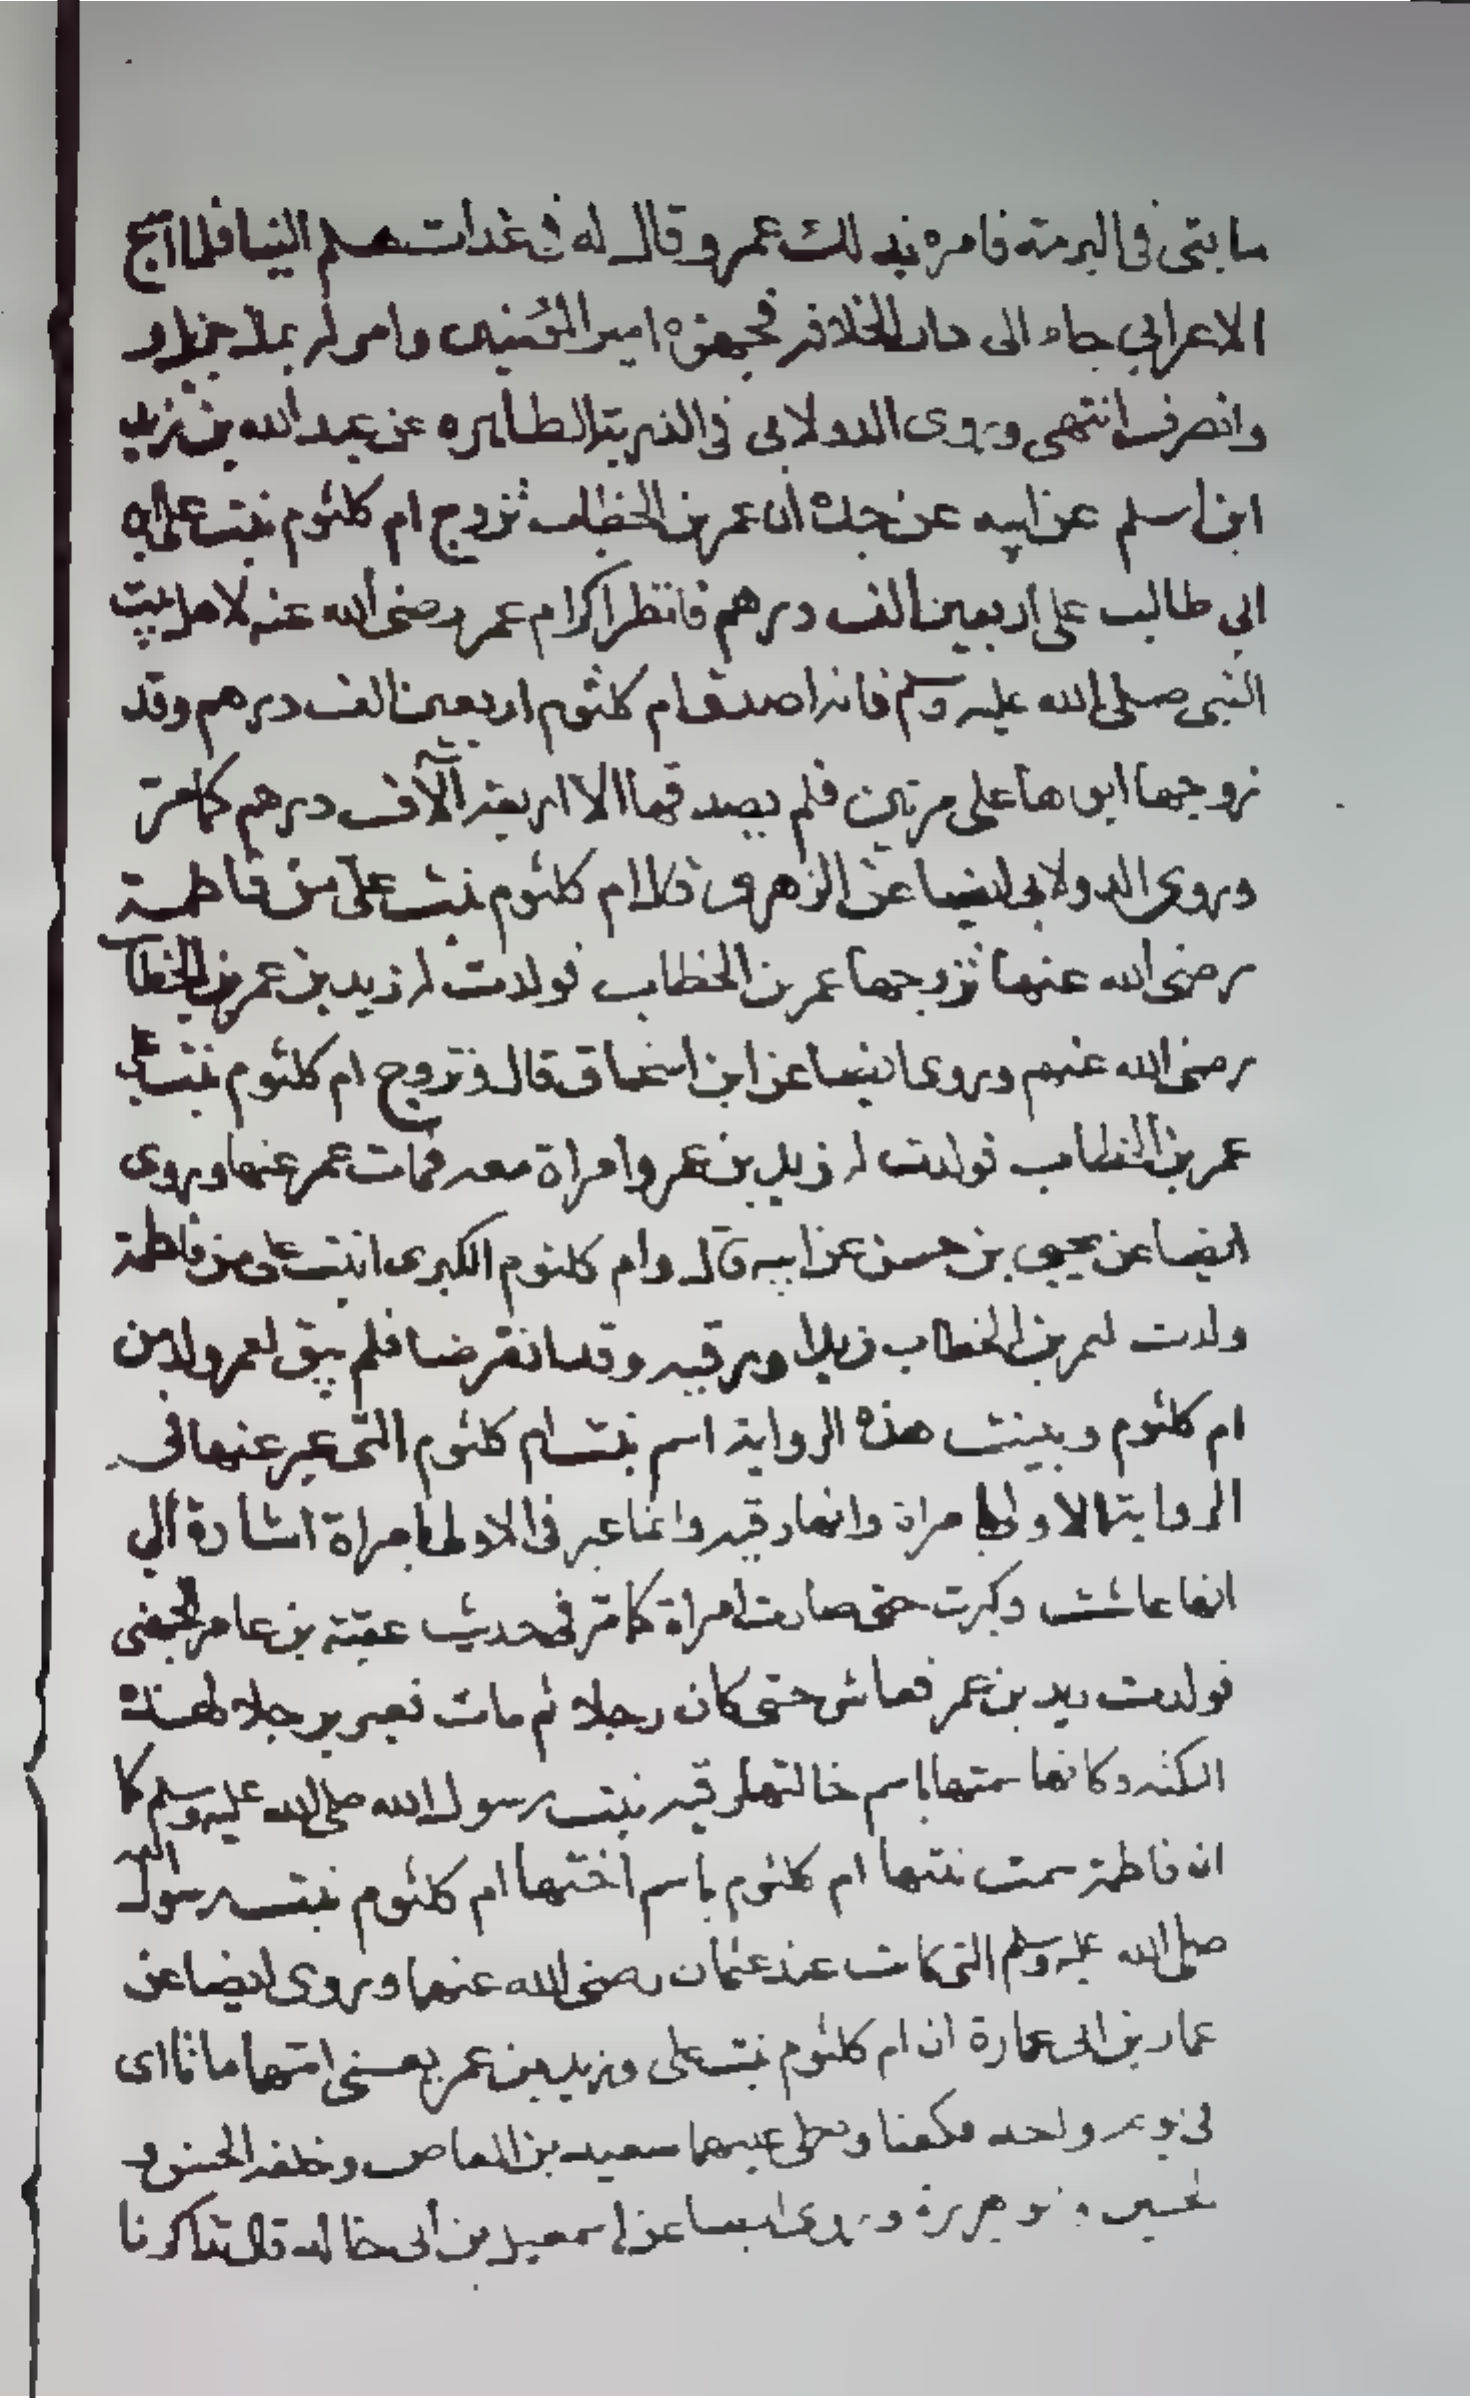 ما بقى فى البرمة فامره بذلك عمر وقال له فى غدات هلم الينا فلما اصبح
الاعرابي جاء الى دار الخلافه فجهزه امير المؤمنين وامر له بملا جزيلا و
وانصرف انتهى وروى الدولابى فى الذرية الطاهره عن عبد الله بن زيد
ابن اسلم عن ابيه عن جده ان عمر بن الخطاب تزوج ام كلثوم بنت على ابه
ابي طالب على اربعين الف درهم فانظر اكرام عمر رضى الله عنه لاهل بيت
النبى صلى الله عليه وسلم فانه اصدق ام كلثوم اربعين الف درهم وقد
زوجها ابوها على مرتين فلم يصدقها الا اربعة آلاف درهم كما مر
وروى الدولابى ايضا عن الزهرى قال ام كلثوم بنت على من فاطمة
رضى الله عنها تزوجها عمر بن الخطاب فولدت له زيد بن عمر بن الخطاب
رضى الله عنهم وروى ايضا عن ابن اسحاق قال وتزوج ام كلثوم بنت على
عمر بن الخطاب فولدت له زيد بن عمر وامراة معه فمات عمر عنها وروى
ايضا عن يحيى بن حسن عن ابيه قال وام كلثوم الكبرى ابنت على من فاطمة
ولدت لعمر بن الخطاب زيدا ورقيه وقد انقرضا فلم يبق لعمر ولد من
ام كلثوم وبينت هذه الرواية اسم بنت ام كلثوم التى عبر عنها فى
الرواية الاولى بامراة وانها رقيه وانما عبر فى الاولى بامراة اشارة الي
انها عاشت وكبرت حتى صارت امراة كما مر فى حديث عقبة بن عامر الجهنى
فولدت زيد بن عمر فعاش حتى كان رجلا ثم مات فعبر برجلا لهذه
النكته وكانها سمتها باسم خالتها رقيه بنت رسول الله صلى الله عليه وسلم كما
ان فاطمة سمت بنتها ام كلثوم باسم اختها ام كلثوم بنت رسول الله
صلى الله عليه وسلم التى كانت عند عثمان رضى الله عنها وروى ايضا عن
عمار بن ابى عمارة ان ام كلثوم بنت على وزيد بن عمر يعنى ابنها ماتا اى
فى يوم واحد فكفنا وصلى عليهما سعيد بن العاص وخلفه الحسن و
لحسين وابو هريرة وروى ايضا عن اسمعيل بن ابى خالد قال تذاكرنا